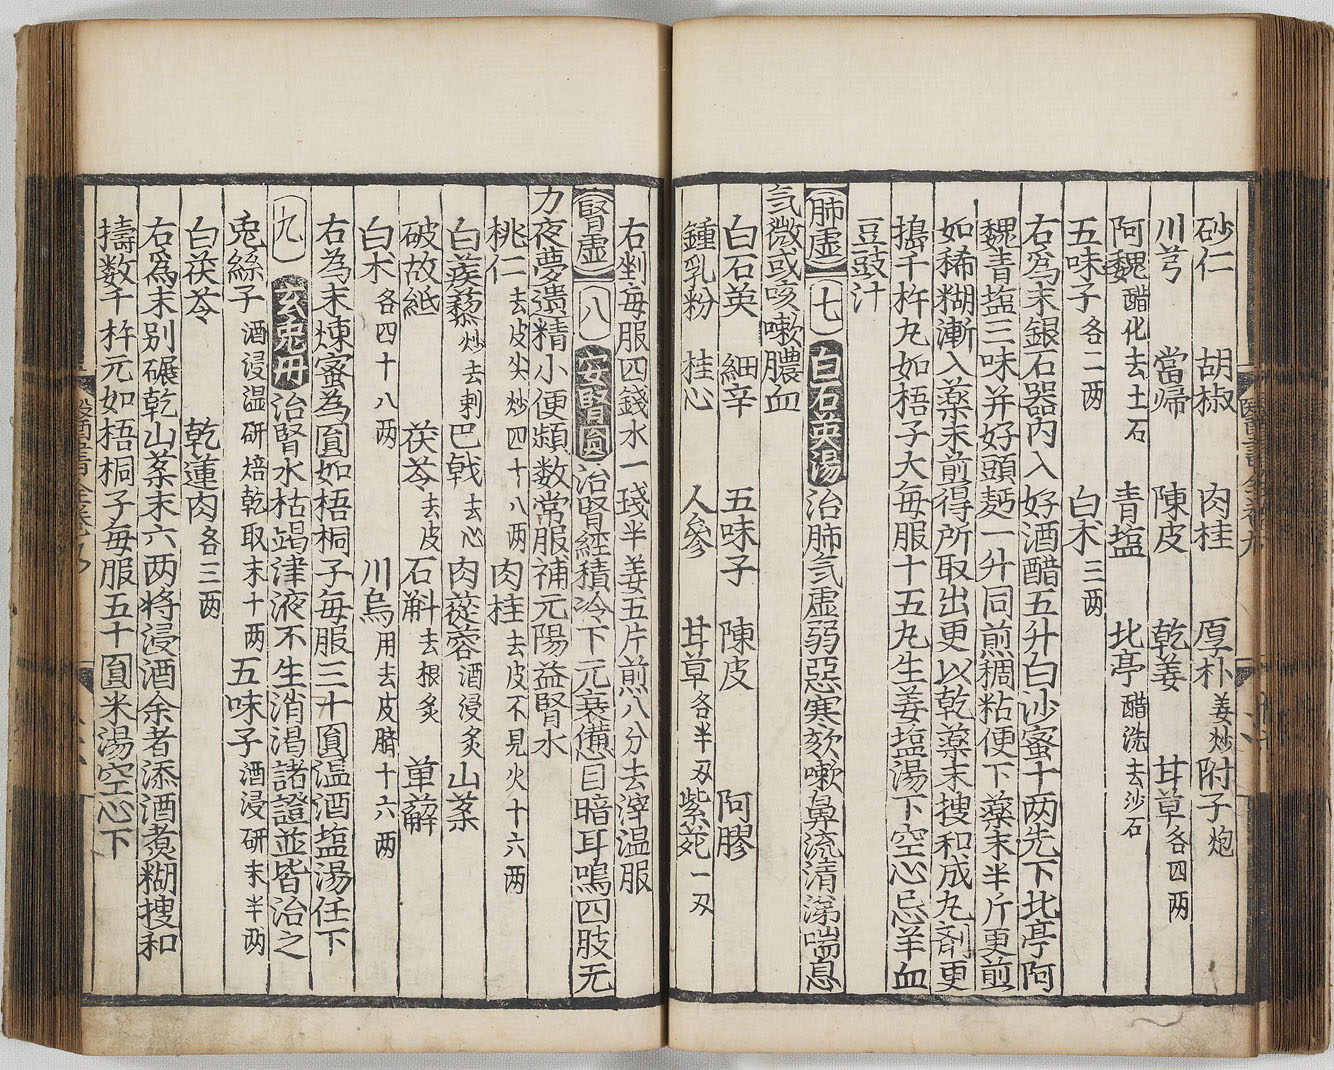 砂仁 胡椒 肉桂 厚朴姜炒 附子炮
川芎 當歸 陳皮 乾姜 甘草各四两
阿魏醋化去土石 青塩 北亭醋洗去沙石
五味子各二两 白术三两
右為末銀石器内入好酒醋五升白沙蜜十两先下北亭阿
魏青塩三味并好頭麪一升同煎稠粘便下藥末半斤更煎
如稀糊漸入藥末煎得所取出更以乾藥末搜和成丸剤更
搗千杵丸如梧子大每服十五丸生姜塩湯下空心忌羊血
豆豉汁
肺虚 七 白石英湯 治肺氣虚弱惡寒欬嗽鼻流清涕喘息
氣微或咳嗽膿血
白石英 細辛 五味子 陳皮 阿膠
鍾乳粉 桂心 人參 甘草各半刄 紫菀一刄
右剉每服四錢水一琖半姜五片煎八分去滓温服
腎虚 八 安腎圓 治腎經積冷下元衰憊目暗耳鳴四肢无
力夜夢遺精小便頻数常服補元陽益腎水
桃仁去皮尖炒四十八两 肉桂去皮不見火十六两
白蒺藜炒去刺 巴戟去心 肉蓯蓉酒浸炙 山藥
破故紙 茯苓去皮 石斛去根炙 萆薢
白术各四十八两 川烏用去皮臍十六两
右為末煉蜜為圓如梧桐子每服三十圓温酒塩湯任下
九 玄兎丹 治腎水枯竭津液不生消渴諸證並皆治之
兎絲子酒浸温研焙乾取末十两 五味子酒浸研末半两
白茯苓 乾蓮肉各三两
右為末别碾乾山藥末六两将浸酒余者添酒煮糊搜和
擣数千杵元如梧桐子每服五十圓米湯空心下